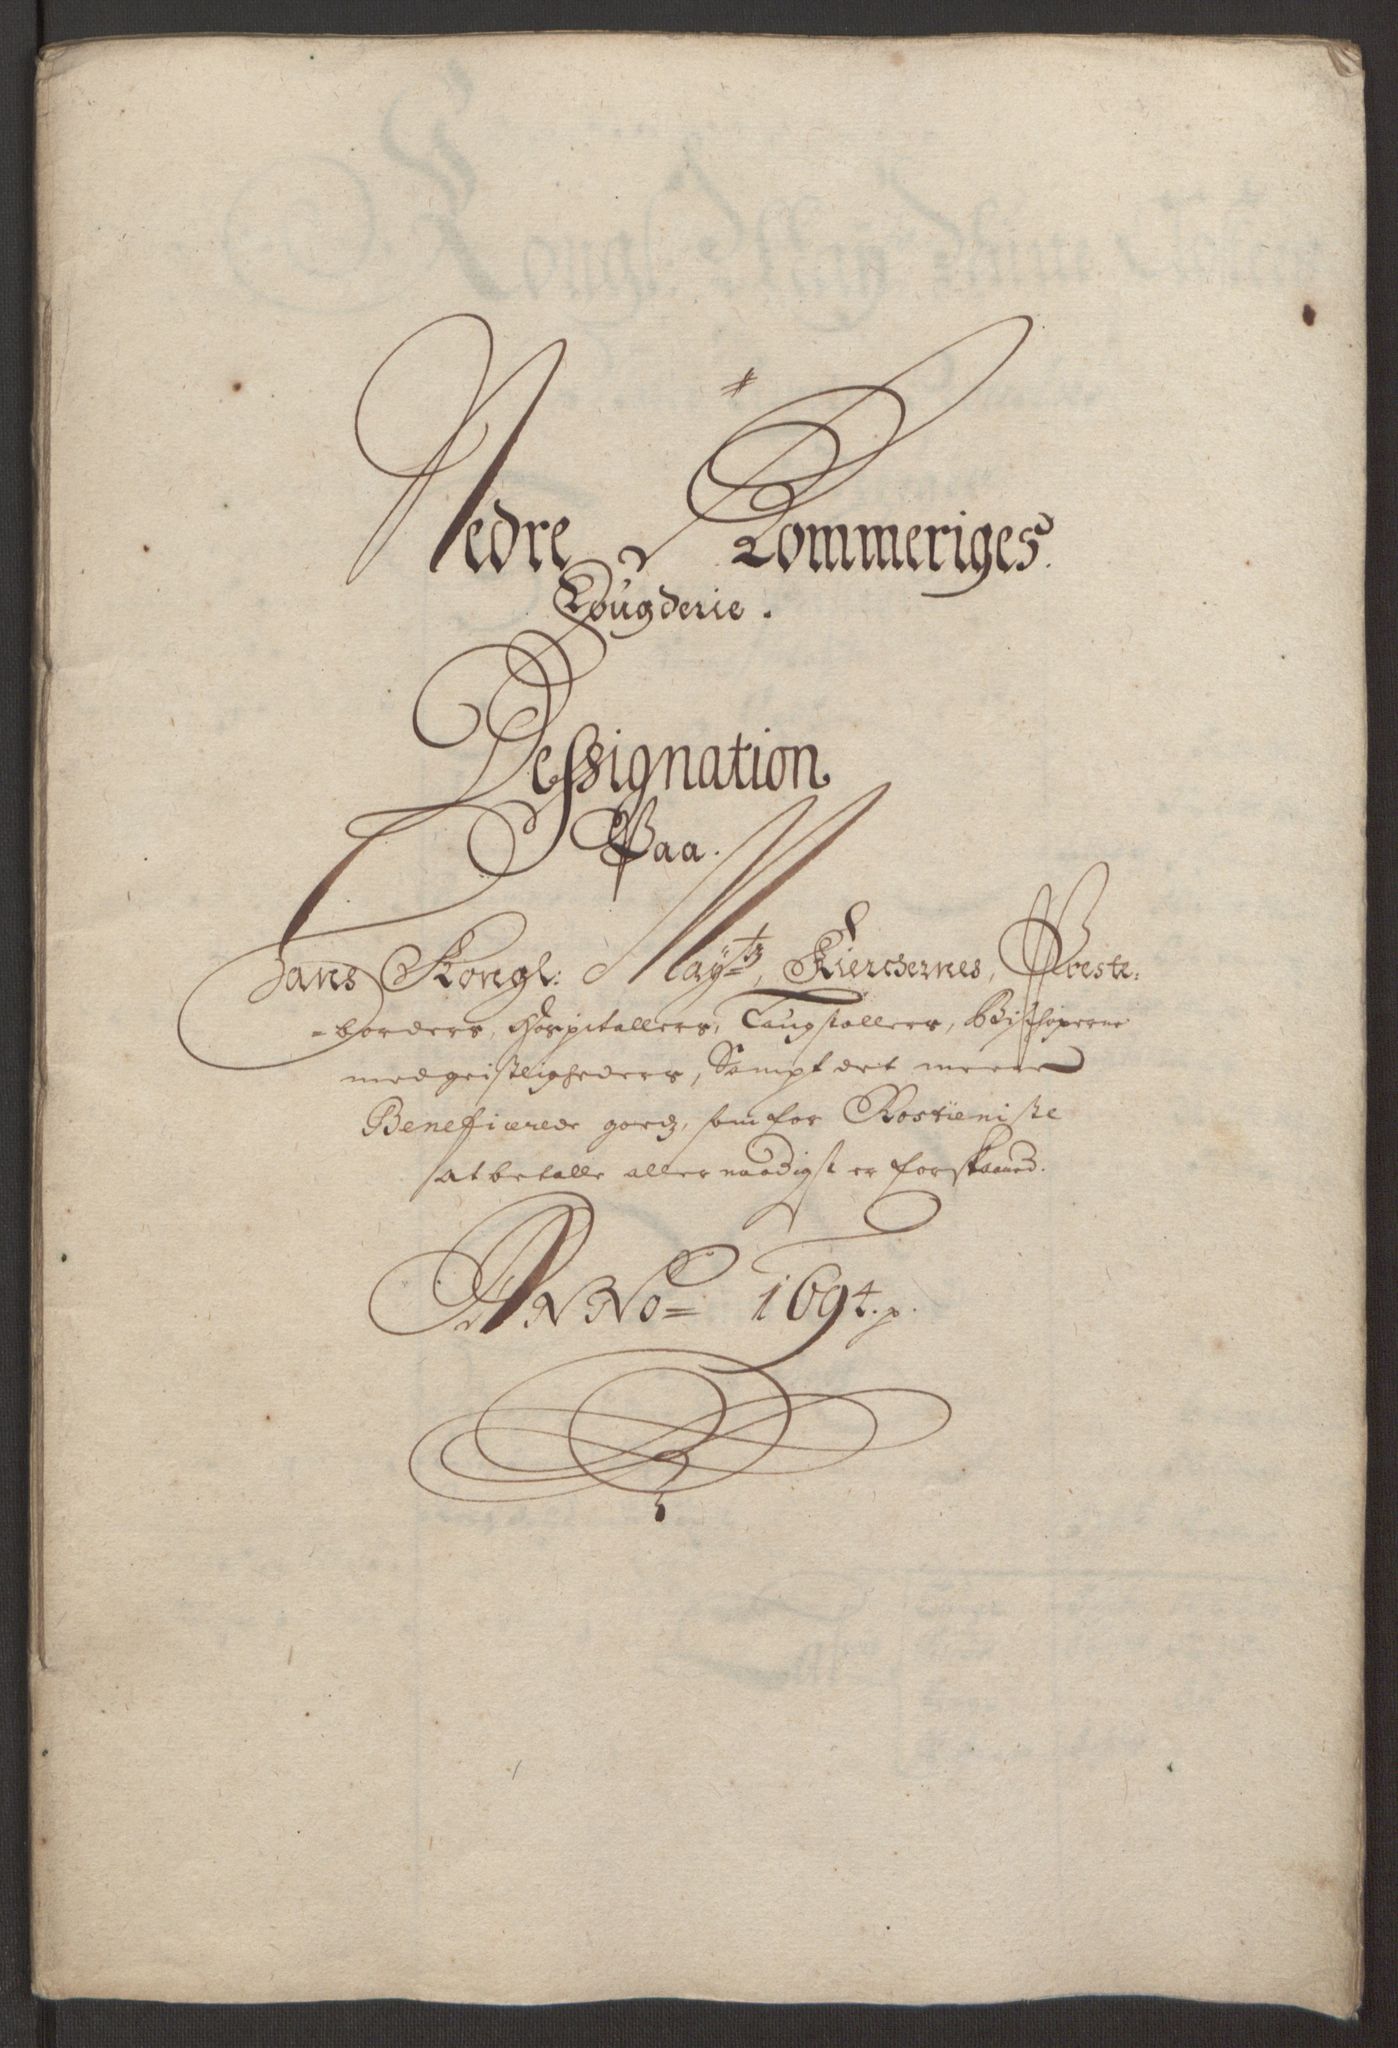 Nedre Rommeriges
Fougderie.
Dessignation
Paa.
Hans Kongl: Maÿtz, Kierchernes, Præste-
=borders, Hospitallers, Laugstollers, Bischoperne
medgeistligheders, Sampt det meere
Beneficerede gotz, som for Rostieniste
at betalle aller naadigst er forskaaned.
ANNo= 1694.p.